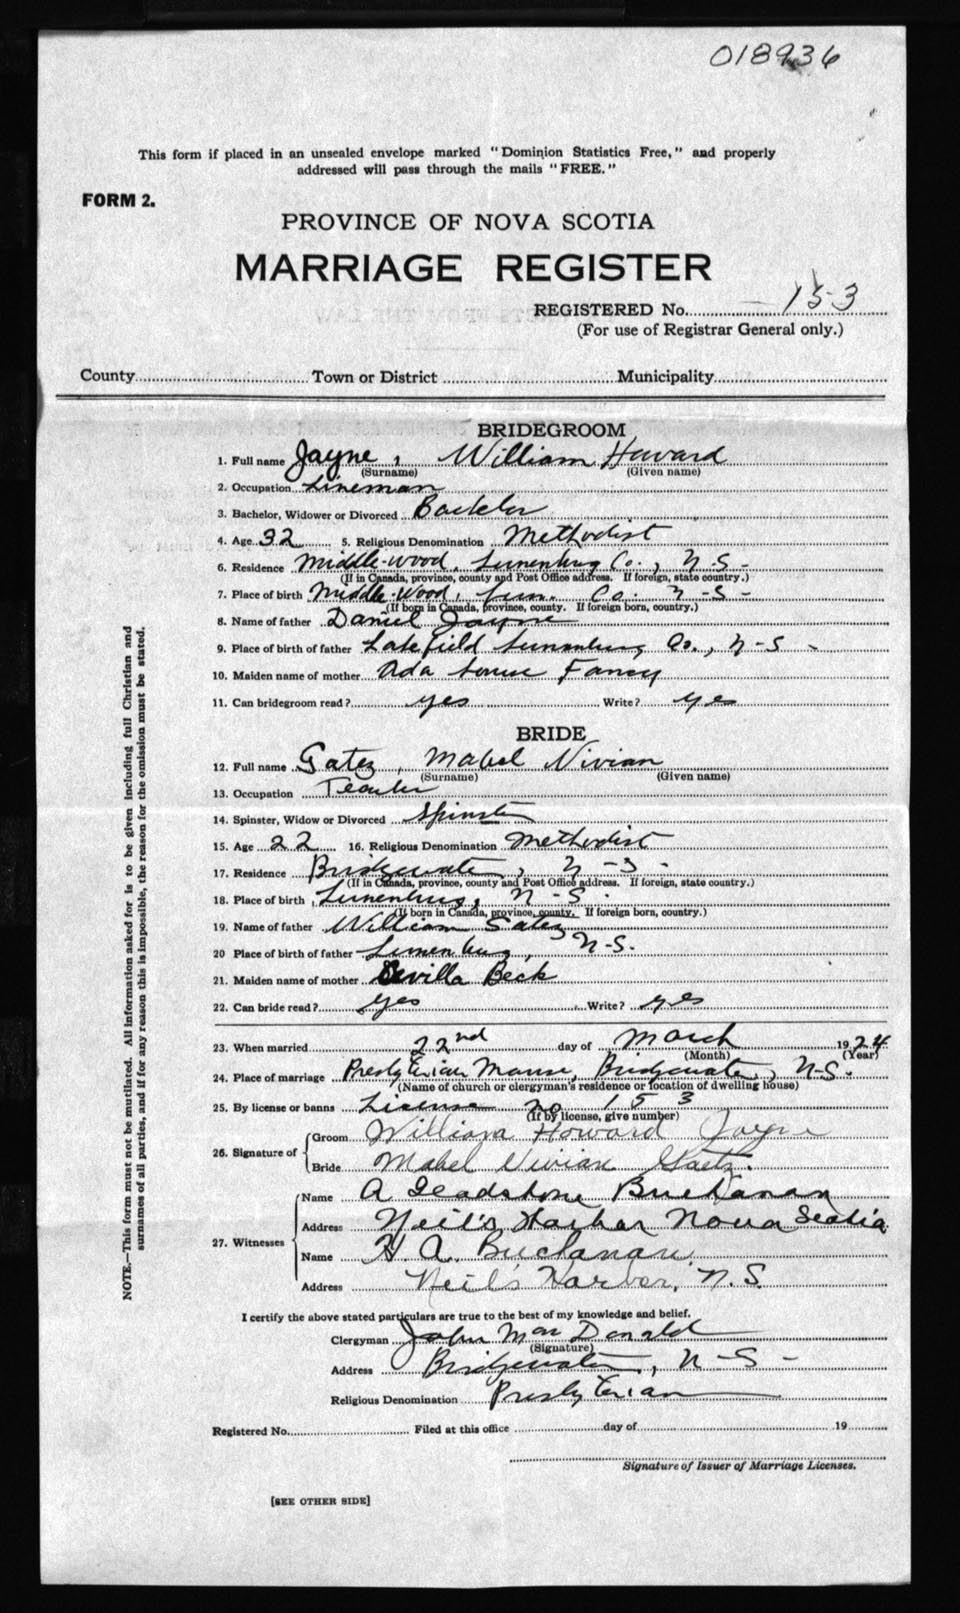 018936
This form if placed in an unsealed envelope marked "Dominion Statistics Free," and properly
addressed will pass through the mails "FREE."
FORM 2.
PROVINCE OF NOVA SCOTIA
MARRIAGE REGISTER
REGISTERED No. 153
(For use of Registrar General only.)
County Town or District Municipality
BRIDEGROOM
1. Full name Jayne, William Howard
(Surname) (Given name)
2. Occupation Lineman
3. Bachelor, Widower or Divorced Bachelor
4. Age 32 5. Religious Denomination Methodist
6. Residence Middle-wood, Lunenburg Co., N-S-
(If in Canada, province, county and Post Office address. If foreign, state country.)
7. Place of birth Middle-Wood, Lun. Co. N-S-
(If born in Canada, province, county. If foreign born, country.)
8. Name of father Daniel Jayne
9. Place of birth of father Lakefield Lunenburg Co., N-S-
10. Maiden name of mother Ada Louise Fancy
11. Can bridegroom read? yes Write? yes
BRIDE
12. Full name Gatez, Mabel Vivian
(Surname) (Given name)
13. Occupation Teacher
14. Spinster, Widow or Divorced Spinster
15. Age 22 16. Religious Denomination Methodist
17. Residence Bridgewater, N-S-
(If in Canada, province, county and Post Office address. If foreign, state country.)
18. Place of birth Lunenburg, N-S.
(If born in Canada, province, county. If foreign born, country.)
19. Name of father William Gatez
20 Place of birth of father Lunenburg, N-S.
21. Maiden name of mother Sevilla Beck
22. Can bride read? yes Write? yes
23. When married 22nd day of March 1924
(Month) (Year)
24. Place of marriage Presbyterian Manse, Bridgewater, N-S.
(Name of church or clergyman's residence or location of dwelling house)
25. By license or banns License no 153
(If by license, give number)
26. Signature of Groom William Howard Jayne
Bride Mabel Vivian Gaetz.
27. Witnesses Name A Gladstone Buchanan
Address Neil's Harbor Nova Scotia
Name H. A. Buchanan.
Address Neil's Harbor, N.S.
I certify the above stated particulars are true to the best of my knowledge and belief.
Clergyman John MacDonald
(Signature)
Address Bridgewater, N-S-
Religious Denomination Presbyterian
Registered No. Filed at this office day of 19
Signature of Issuer of Marriage Licenses.
[SEE OTHER SIDE]
NOTE.—This form must not be mutilated. All information asked for is to be given including full Christian and
surnames of all parties, and if for any reason this is impossible, the reason for the omission must be stated.